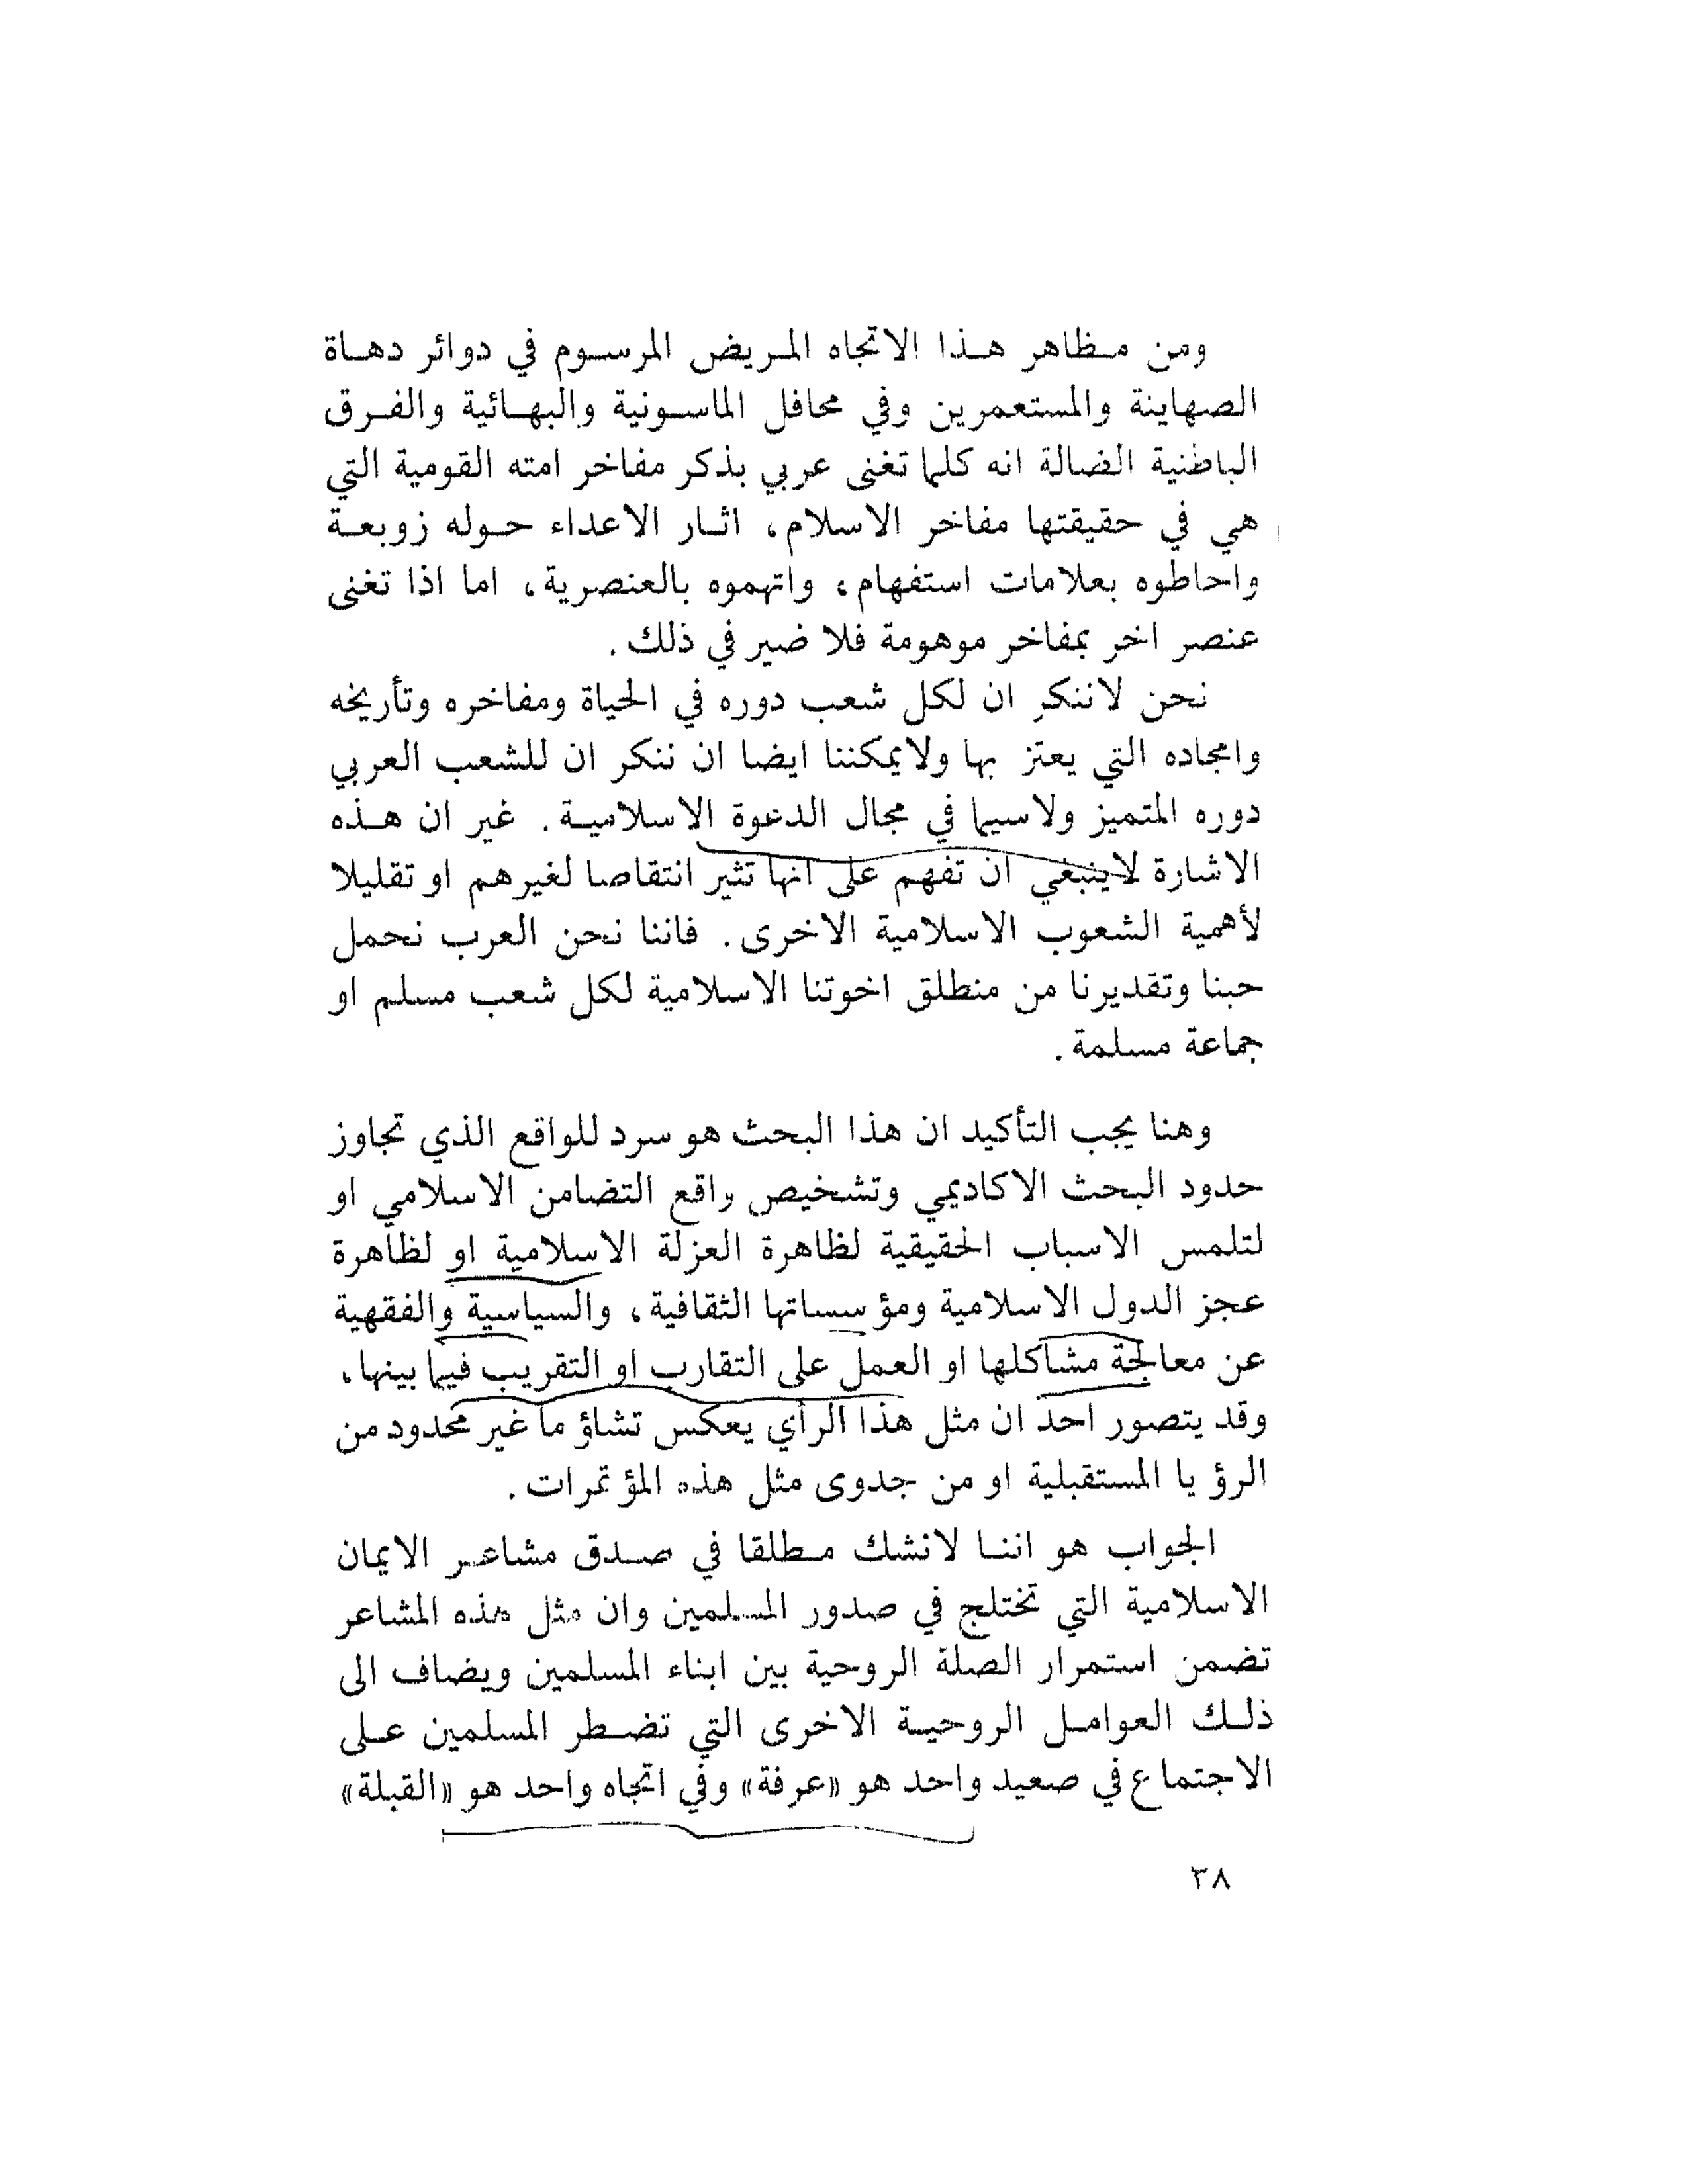 ومن مظاهر هذا الاتجاه المريض المرسوم في دوائر دهاة
الصهاينة والمستعمرين وفي محافل الماسونية والبهائية والفرق
الباطنية الضالة انه كلما تغنى عربي بذكر مفاخر امته القومية التي
هي في حقيقتها مفاخر الاسلام، اثار الاعداء حوله زوبعة
واحاطوه بعلامات استفهام، واتهموه بالعنصرية، اما اذا تغنى
عنصر اخر بمفاخر موهومة فلا ضير في ذلك.
نحن لاننكر ان لكل شعب دوره في الحياة ومفاخره وتأريخه
وامجاده التي يعتز بها ولايمكننا ايضا ان ننكر ان للشعب العربي
دوره المتميز ولاسيما في مجال الدعوة الاسلامية. غير ان هذه
الاشارة لاينبغي ان تفهم على انها تثير انتقاصا لغيرهم او تقليلا
لأهمية الشعوب الاسلامية الاخرى. فاننا نحن العرب نحمل
حبنا وتقديرنا من منطلق اخوتنا الاسلامية لكل شعب مسلم او
جماعة مسلمة.
وهنا يجب التأكيد ان هذا البحث هو سرد للواقع الذي تجاوز
حدود البحث الاكاديمي وتشخيص واقع التضامن الاسلامي او
لتلمس الاسباب الحقيقية لظاهرة العزلة الاسلامية او لظاهرة
عجز الدول الاسلامية ومؤسساتها الثقافية، والسياسية والفقهية
عن معالجة مشاكلها او العمل على التقارب او التقريب فيما بينها،
وقد يتصور احد ان مثل هذا الرأي يعكس تشاؤما غير محدود من
الرؤيا المستقبلية او من جدوى مثل هذه المؤتمرات.
الجواب هو اننا لانشك مطلقا في صدق مشاعر الايمان
الاسلامية التي تختلج في صدور المسلمين وان مثل هذه المشاعر
تضمن استمرار الصلة الروحية بين ابناء المسلمين ويضاف الى
ذلك العوامل الروحية الاخرى التي تضطر المسلمين على
الاجتماع في صعيد واحد هو «عرفة» وفي اتجاه واحد هو «القبلة»
٣٨